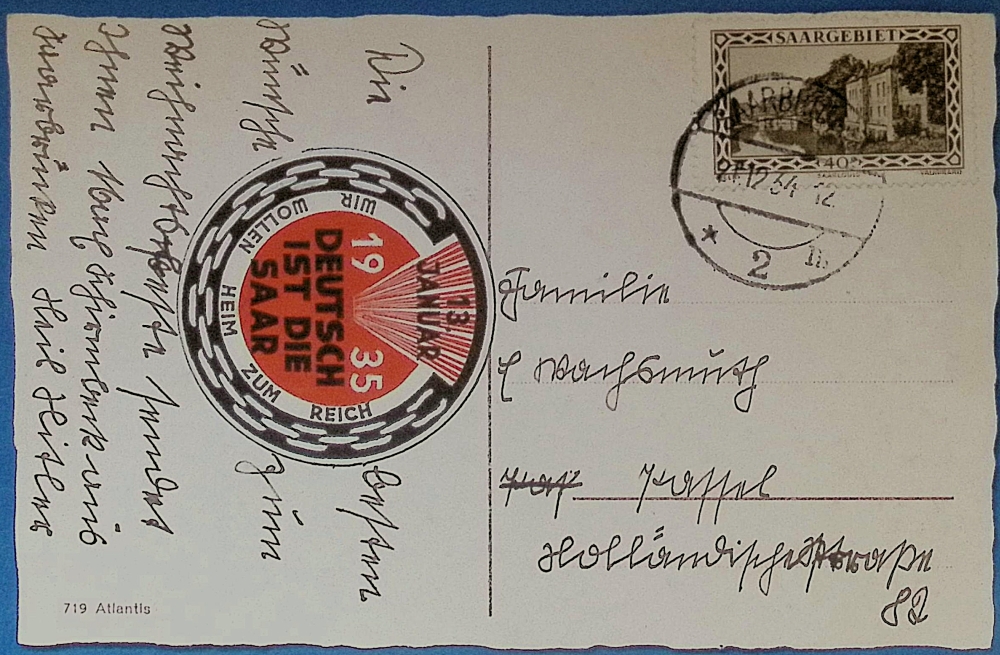 Die besten
Wünsche zum
Weihnachtsfeste sendet
Ihnen aus
Saarbrücken Heil Hitler
WIR WOLLEN HEIM ZUM REICH
13.
JANUAR
19 35
DEUTSCH
IST DIE
SAAR
719 Atlantis
SAARGEBIET
40
12 34 12
* 2
Familie
Wachsmuth
Kassel
Holländischestraße
82